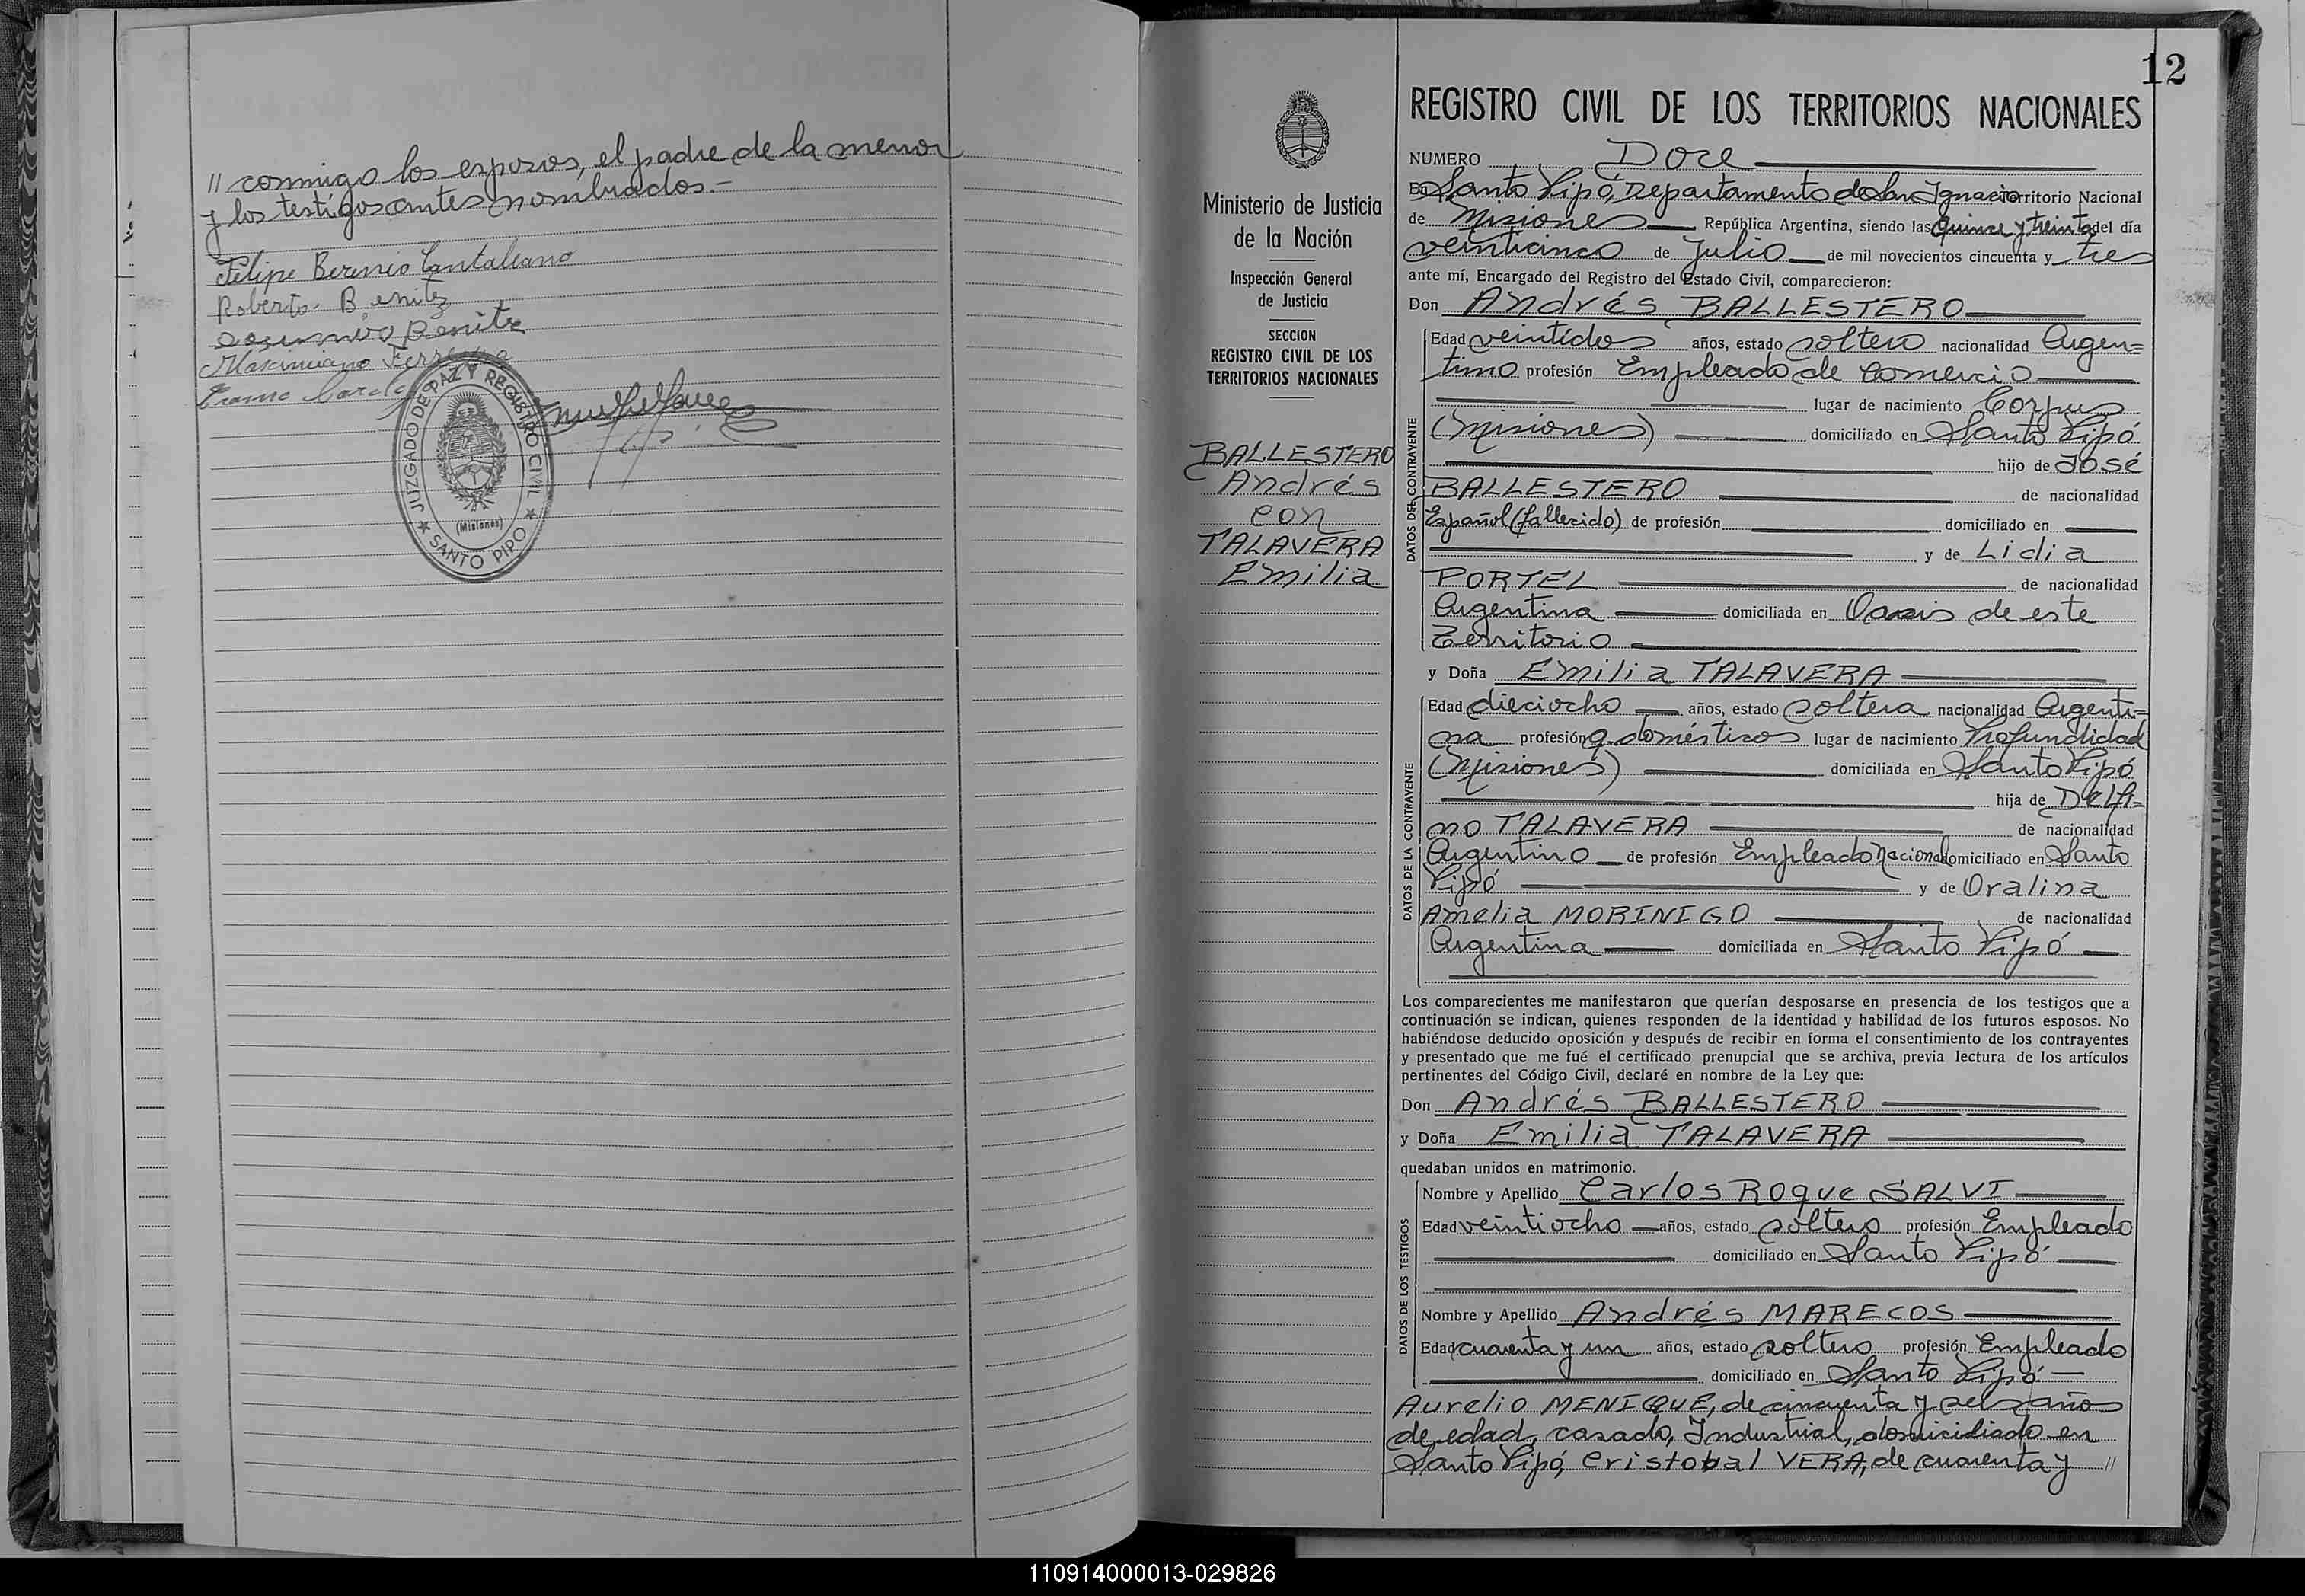 // conmigo los esposos, el padre de la menor
y los testigos antes nombrados.-
Felipe Berenis Cantaleano
Roberto Benitez
Benitz
Maximiano Ferreira
JUZGADO DE PAZ Y REGISTRO CIVIL
(Misiones)
★ SANTO PIPO ★
12
Ministerio de Justicia
de la Nación
Inspección General
de Justicia
SECCION
REGISTRO CIVIL DE LOS
TERRITORIOS NACIONALES
BALLESTERO
Andrés
con
TALAVERA
Emilia
REGISTRO CIVIL DE LOS TERRITORIOS NACIONALES
NUMERO Doce
En Santo Pipó, Departamento de San Ignacio Territorio Nacional
de Misiones República Argentina, siendo las quince y treinta del día
veinticinco de Julio de mil novecientos cincuenta y tres
ante mí, Encargado del Registro del Estado Civil, comparecieron:
Don Andrés BALLESTERO
DATOS DEL CONTRAYENTE
Edad veintidos años, estado soltero nacionalidad Argen=
tino profesión Empleado de Comercio
lugar de nacimiento Corpus
(Misiones) domiciliado en Santo Pipó
hijo de José
BALLESTERO de nacionalidad
Español (fallecido) de profesión domiciliado en
y de Lidia
PORTEL de nacionalidad
Argentina domiciliada en Oasis de este
Territorio
y Doña Emilia TALAVERA
DATOS DE LA CONTRAYENTE
Edad dieciocho años, estado soltera nacionalidad Argenti=
na profesión q. domésticos lugar de nacimiento Profundidad
(Misiones) domiciliada en Santo Pipó
hija de Delfi=
no TALAVERA de nacionalidad
Argentino de profesión Empleado Nacional domiciliado en Santo
Pipó y de Oralina
Amelia MORINIGO de nacionalidad
Argentina domiciliada en Santo Pipó
Los comparecientes me manifestaron que querían desposarse en presencia de los testigos que a
continuación se indican, quienes responden de la identidad y habilidad de los futuros esposos. No
habiéndose deducido oposición y después de recibir en forma el consentimiento de los contrayentes
y presentado que me fué el certificado prenupcial que se archiva, previa lectura de los artículos
pertinentes del Código Civil, declaré en nombre de la Ley que:
Don Andrés BALLESTERO
y Doña Emilia TALAVERA
quedaban unidos en matrimonio.
DATOS DE LOS TESTIGOS
Nombre y Apellido Carlos Roque SALVI
Edad veintiocho años, estado soltero profesión Empleado
domiciliado en Santo Pipó
Nombre y Apellido Andrés MARECOS
Edad cuarenta y un años, estado soltero profesión Empleado
domiciliado en Santo Pipó
Aurelio MENIQUE, de cincuenta y seis años
de edad, casado, Industrial, domiciliado en
Santo Pipó, Cristobal VERA, de cuarenta y //
110914000013-029826